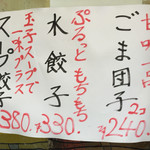 甘味一品
ごま団子
2コ
¥240.
ぷるっともちもち
水餃子
¥330.
玉子スープで
一味プラス
スープ餃子
¥380.